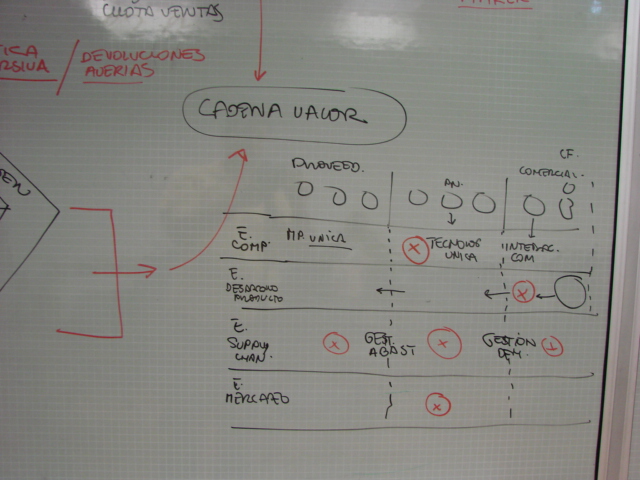 CUOTA VENTAS
DEVOLUCIONES
AVERIAS
CADENA VALOR
PROVEED.
AN.
CF.
COMERCIAL.
E.
COMP.
MP. UNICA
TECNOLOG
UNICA
INTERFAC.
COM
E.
DESARROLLO
PRODUCTO
E.
SUPPLY
CHAN.
GEST.
ABAST
GESTIÓN
DEM.
E.
MERCADEO